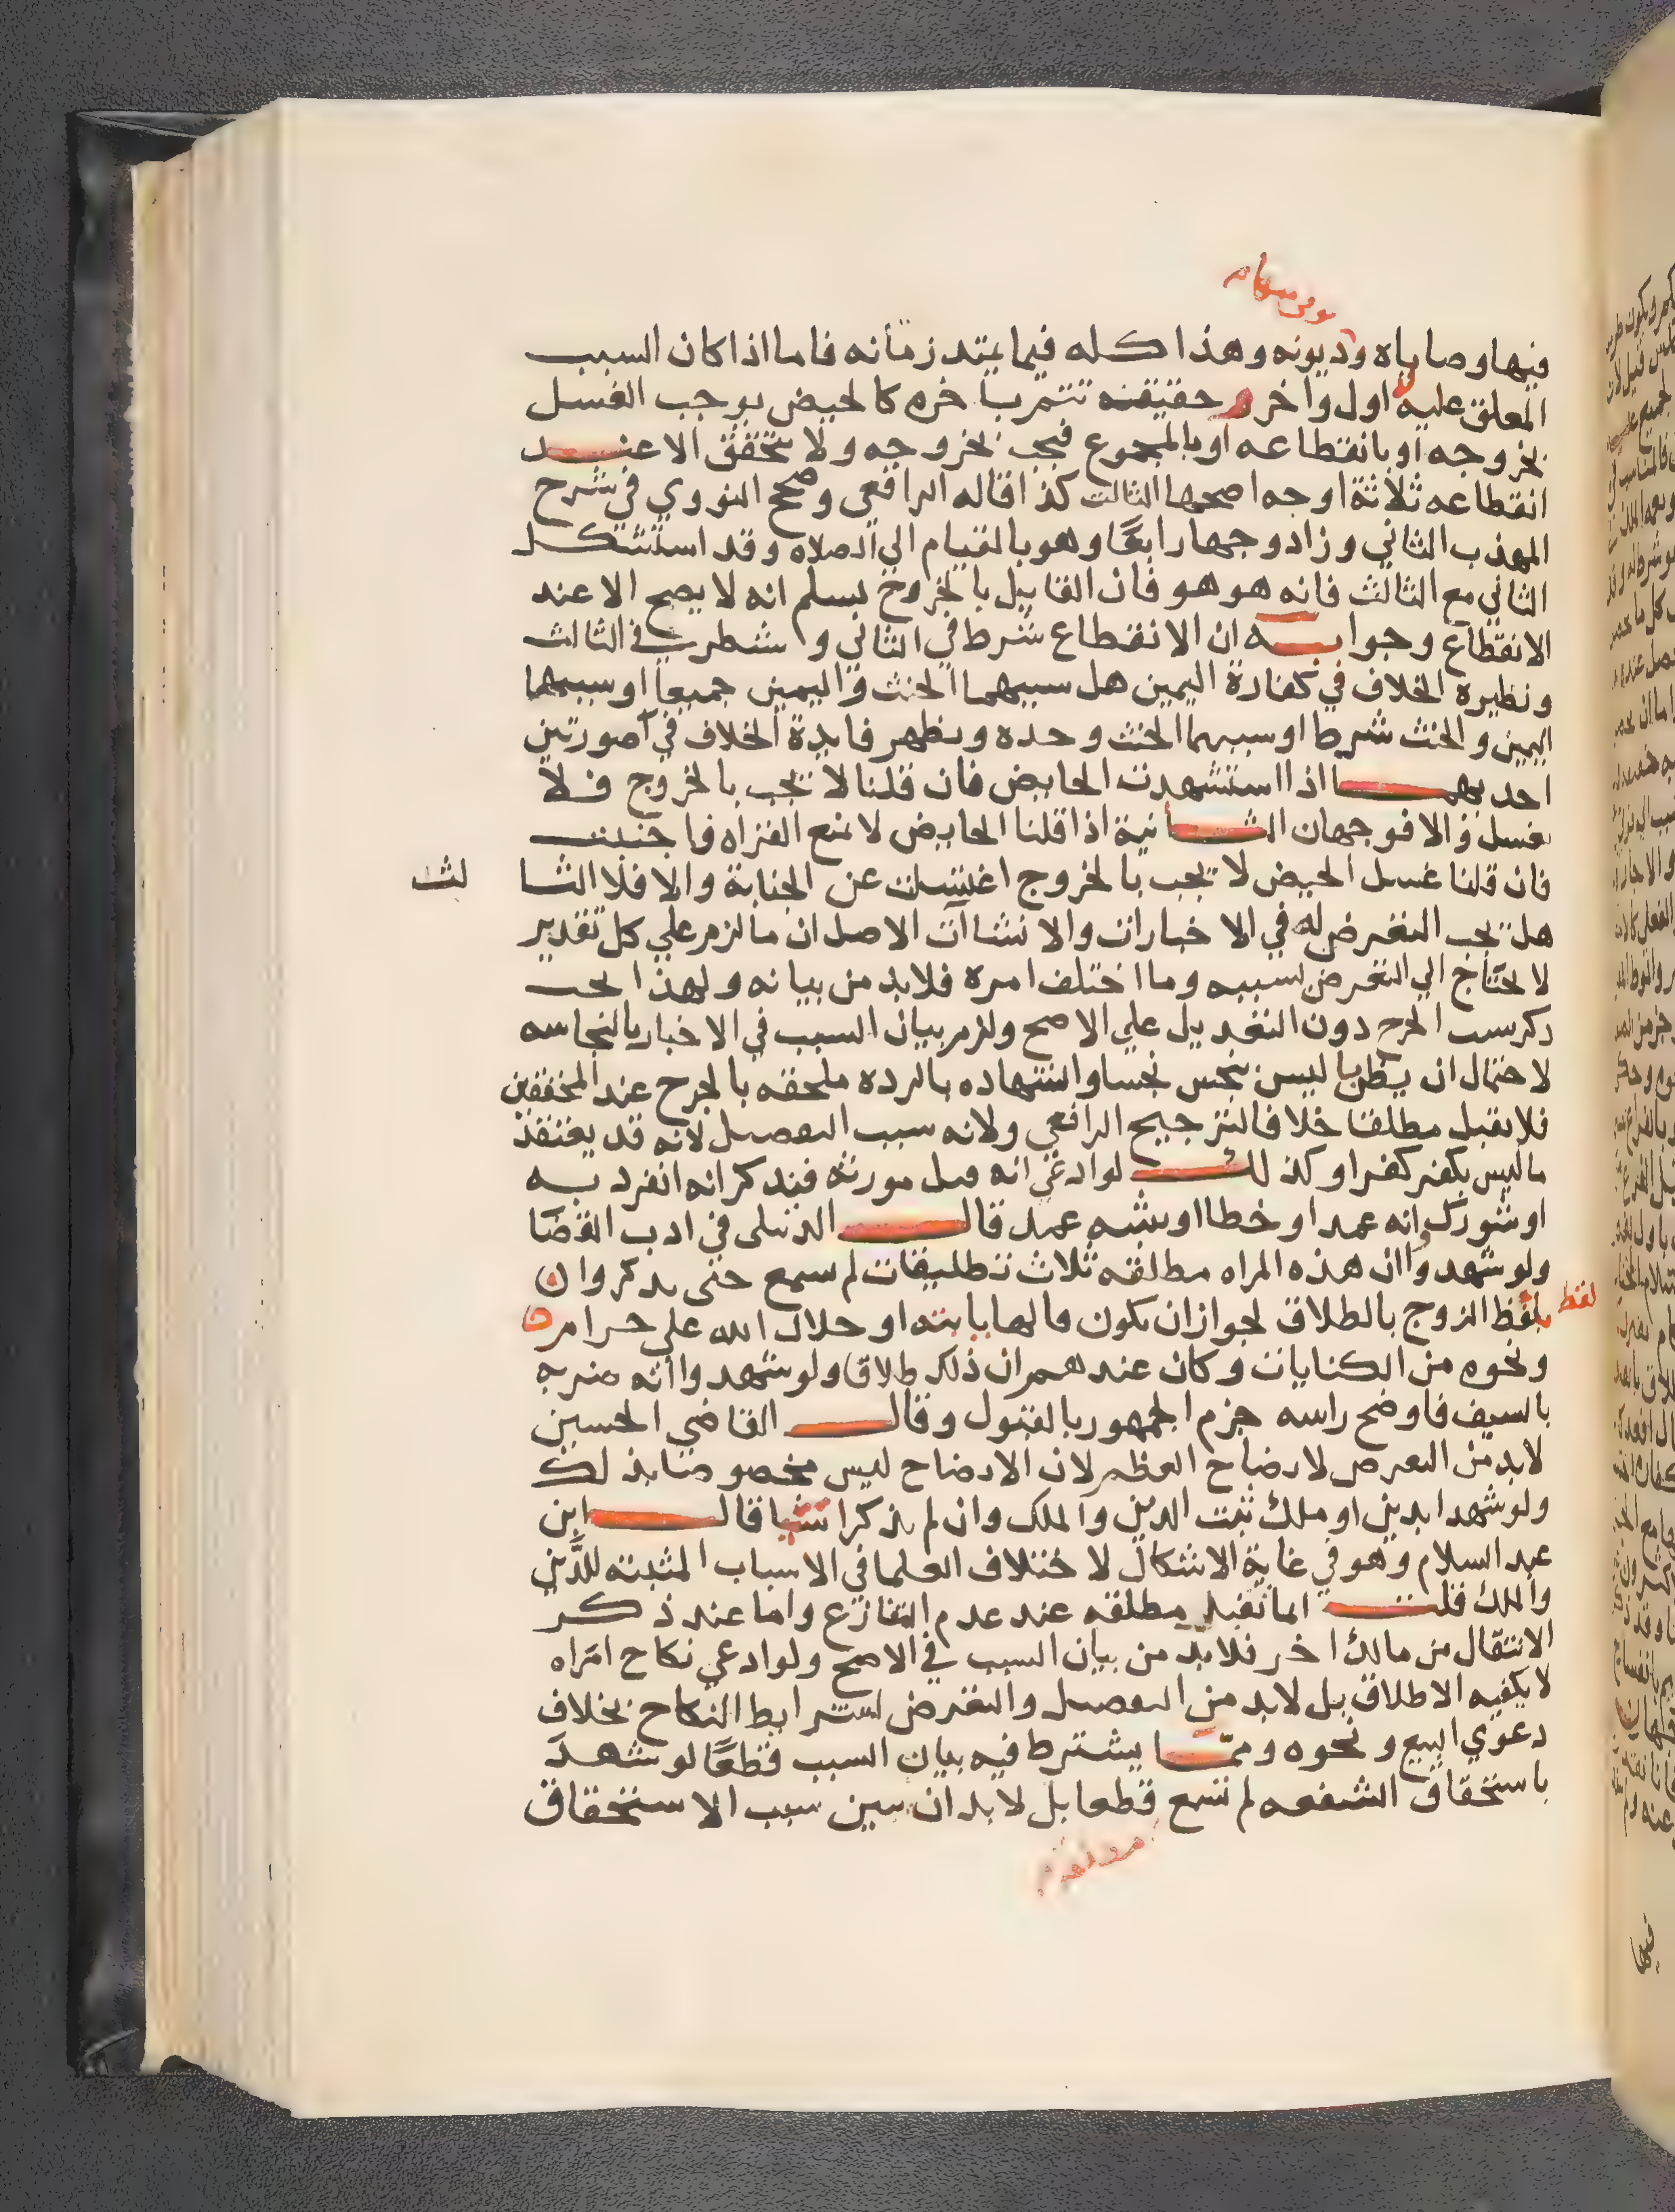 فيها وصاياه وديونه وهذا كله فيما يمتد زمانه فاما اذا كان السبب
المعلق عليه اول واخر وحقيقته تتم باخره كالحيض يوجب الغسل
بخروجه او بانقطاعه او بالمجموع فيجب بخروجه ولا يتحقق الا عند
انقطاعه ثلاثة اوجه اصحها الثالث كذا قاله الرافعي وصحح النووي في شرح
المهذب الثاني وزاد وجها رابعًا وهو بالقيام الي الصلاه وقد استشكل
الثاني مع الثالث فانه هو هو فان القايل بالخروج يسلم انه لا يصح الا عند
الانقطاع وجوابه ان الانقطاع شرط في الثاني وشطر في الثالث
ونظيره الخلاف في كفارة اليمين هل سببهما الحنث واليمين جميعا او سببهما
اليمين والحنث شرط او سببهما الحنث وحده ويظهر فايدة الخلاف في صورتين
احديهما اذا استشهدت الحايض فان قلنا لا يجب بالخروج فلا
غسل والا فوجهان الثانية اذا قلنا الحايض لا تمنع القراه فاجنبت
فان قلنا غسل الحيض لا يجب بالخروج اغتسلت عن الجنابة والا فلا الثا لث
هل يجب التعرض له في الاخبارات والانشاآت الاصل ان ما لزم علي كل تقدير
لا يحتاج الي التعرض لسببه وما اختلف امره فلا بد من بيانه ولهذا يجب
ذكر سبب الجرح دون التعديل علي الاصح ولزم بيان السبب في الاخبار بالنجاسه
لاحتمال ان يظن ما ليس بنجس نجسا والشهاده بالرده ملحقه بالجرح عند المحققين
فلا يقبل مطلقا خلافا لترجيح الرافعي ولانه سبب التفصيل لانه قد يعتقد
ما ليس بكفر كفرا وكذلك لو ادعي انه قتل مورثه فيذكر انه انفرد به
او شورك وانه عمد او خطا او شبه عمد قال الدبيلي في ادب القضا
ولو شهدوا ان هذه المراه مطلقه ثلاث تطليقات لم تسمع حتى يذكروا
لفظ الزوج بالطلاق لجواز ان يكون قالها بابته او حلال الله علي حرام
ونحوه من الكنايات وكان عندهم ان ذلك طلاق ولو شهدوا انه ضربه
بالسيف فاوضح راسه جزم الجمهور بالقبول وقال القاضي الحسين
لا بد من التعرض لايضاح العظم لان الايضاح ليس مخصوصا بذلك
ولو شهدا بدين او ملك ثبت الدين والملك وان لم يذكرا شيا قال ابن
عبد السلام وهو في غاية الاشكال لاختلاف العلما في الاسباب المثبته للدّين
والملك قلت انما تقبل مطلقه عند عدم التنازع واما عند ذكر
الانتقال من مالك اخر فلا بد من بيان السبب في الاصح ولو ادعي نكاح امراه
لا يكفيه الاطلاق بل لا بد من التفصيل والتعرض لشرايط النكاح بخلاف
دعوي البيع ونحوه ومما يشترط فيه بيان السبب قطعًا لو شهد
باستحقاق الشفعه لم تسمع قطعا بل لا بد ان يبين سبب الاستحقاق